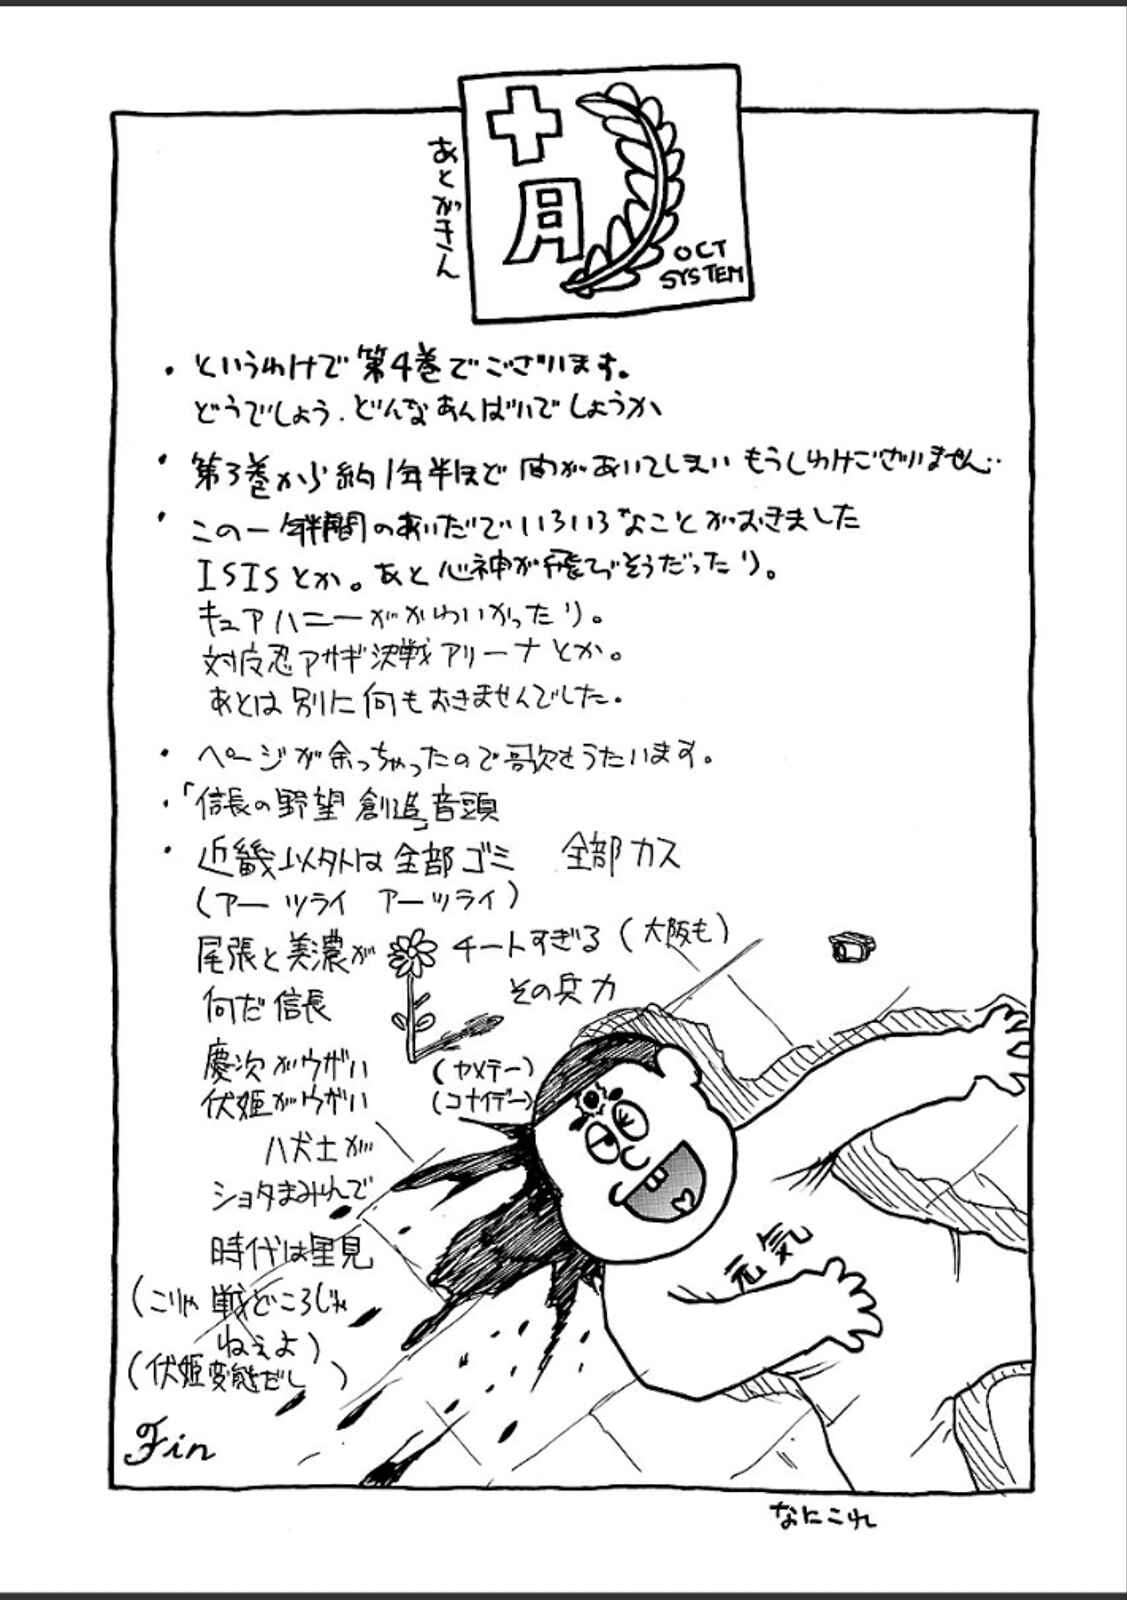 あとがきん
十月
OCT
SYSTEM
・というわけで第4巻でございます。
どうでしょう。どんなあんばいでしょうか
・第3巻から約1年半ほど間があいてしまいもうしわけございません‥
・この一年半間のあいだでいろいろなことがおきました
ISISとか。あと心神が飛びそうだったり。
キュアハニーがかわいかったり。
対魔忍アサギ決戦アリーナとか。
あとは別に何もおきませんでした。
・ページが余っちゃったので歌をうたいます。
・「信長の野望 創造」音頭
・近畿以外は全部ゴミ 全部カス
(アー ツライ アーツライ)
尾張と美濃が チートすぎる (大阪も)
何だ信長 その兵力
慶次がウザい (ヤメテー)
伏姫がウザい (コナイデー)
八犬士が
ショタまみれで
時代は里見
(こりゃ戦どころじゃ
ねぇよ)
(伏姫変態だし)
Fin
元気
なにこれ